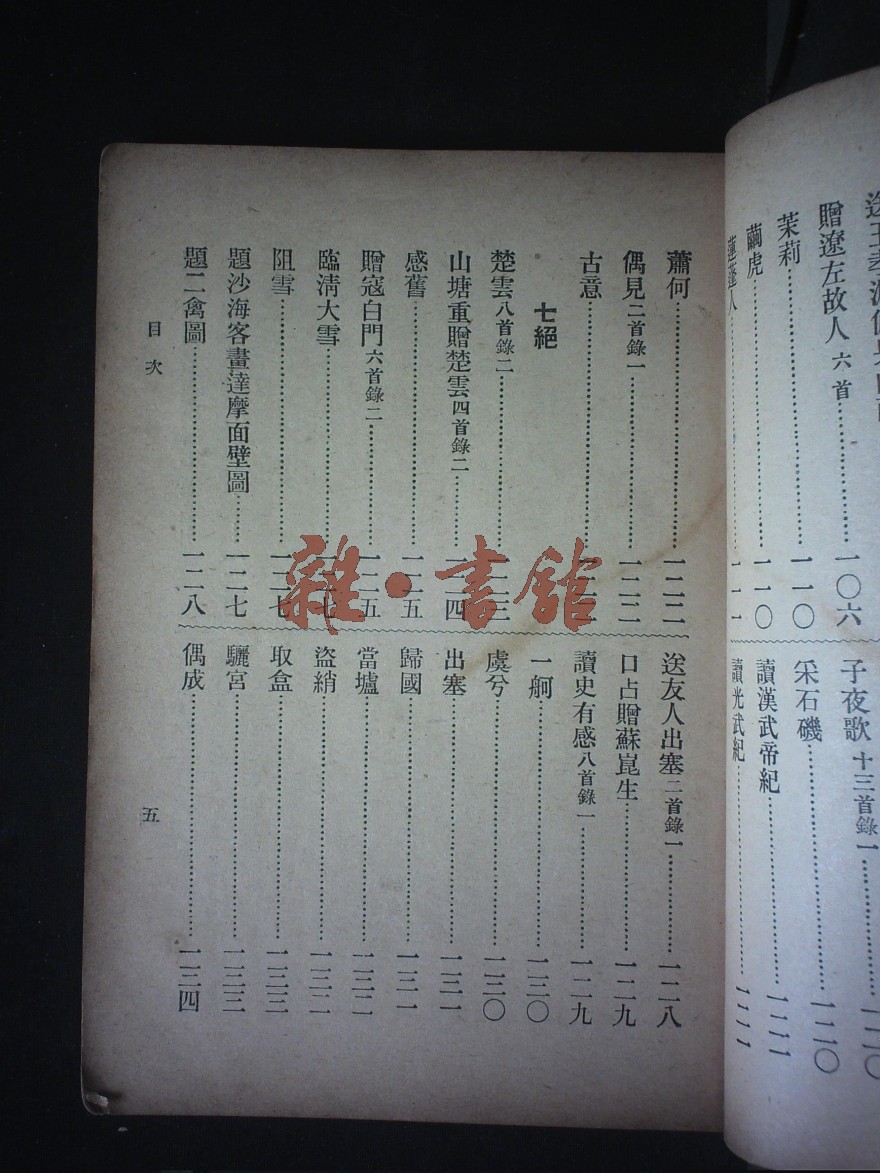 贈遼左故人六首……一〇六
茉莉……一一〇
繭虎……一一〇
蓮蓬人……一一一
子夜歌十三首錄一……一二〇
采石磯……一二〇
讀漢武帝紀……一二一
讀光武紀……一二一
蕭何……一二二
偶見二首錄一……一二二
古意……
七絕
楚雲八首錄二……一二三
山塘重贈楚雲四首錄二……一二四
感舊……一二五
贈寇白門六首錄二……一二五
臨清大雪……一二七
阻雪……一二七
題沙海客畫達摩面壁圖……一二七
題二禽圖……一二八
送友人出塞二首錄一……一二八
口占贈蘇崑生……一二九
讀史有感八首錄一……一二九
一舸……一三〇
虞兮……一三〇
出塞……一三一
歸國……一三一
當壚……一三二
盜綃……一三二
取盒……一三三
驪宮……一三三
偶成……一三四
目次
五
雜·書館